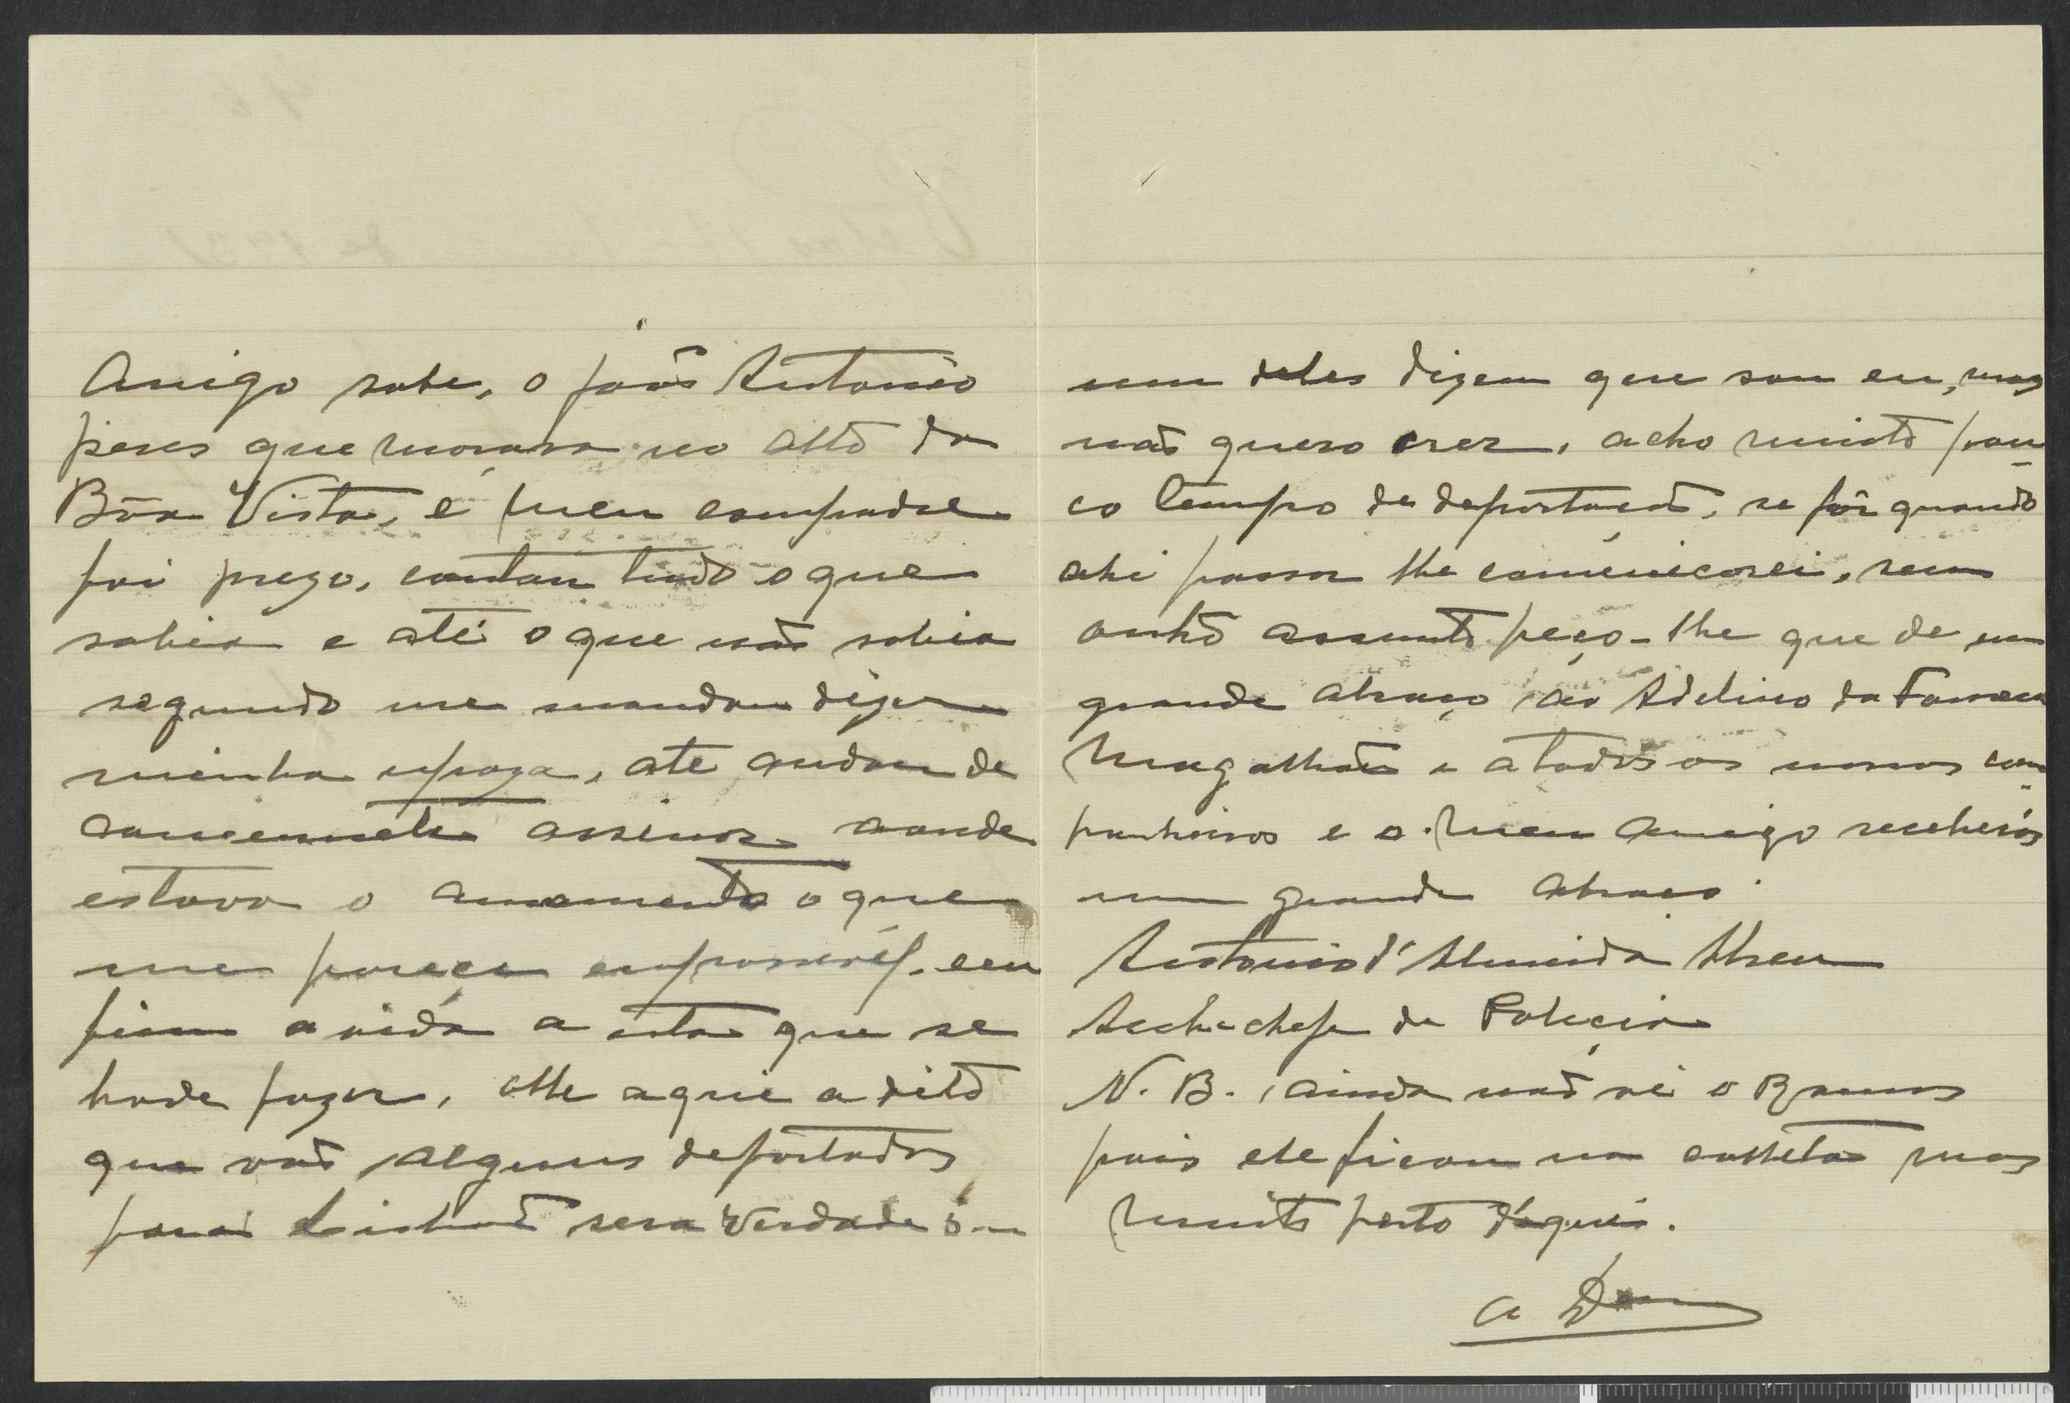 Amigo sabe, o João Antonio
peres que morava no alto da
Bõa Vista, e meu compadre
foi prezo, contou tudo o que
sabia e até o que não sabia
segundo me mandou dizer
minha espoza, ate andou de
assinar aonde
estava o armamento o que
me parece empossivél. em
fim a vida a esta que se
hade fazer, elle aqui a dito
que vão alguns deportados
para Lisboa sera verdade ó
um deles dizem que sou eu, mas
não quero crer, acho muito pou-
co tempo de deportação, se fôr quando
ahi passar lhe comenicarei, sem
outro assunto peço-lhe que de um
grande abraço ao Adelino da Fonseca
Magalhães e a todos os nossos com-
panheiros e o meu amigo receberás
um grande abraço
Antonio d'Almeida Abreu
chefe da Policia
N. B. ainda não vi o Ramos
pois ele ficou no mas
muito perto d'aqui.